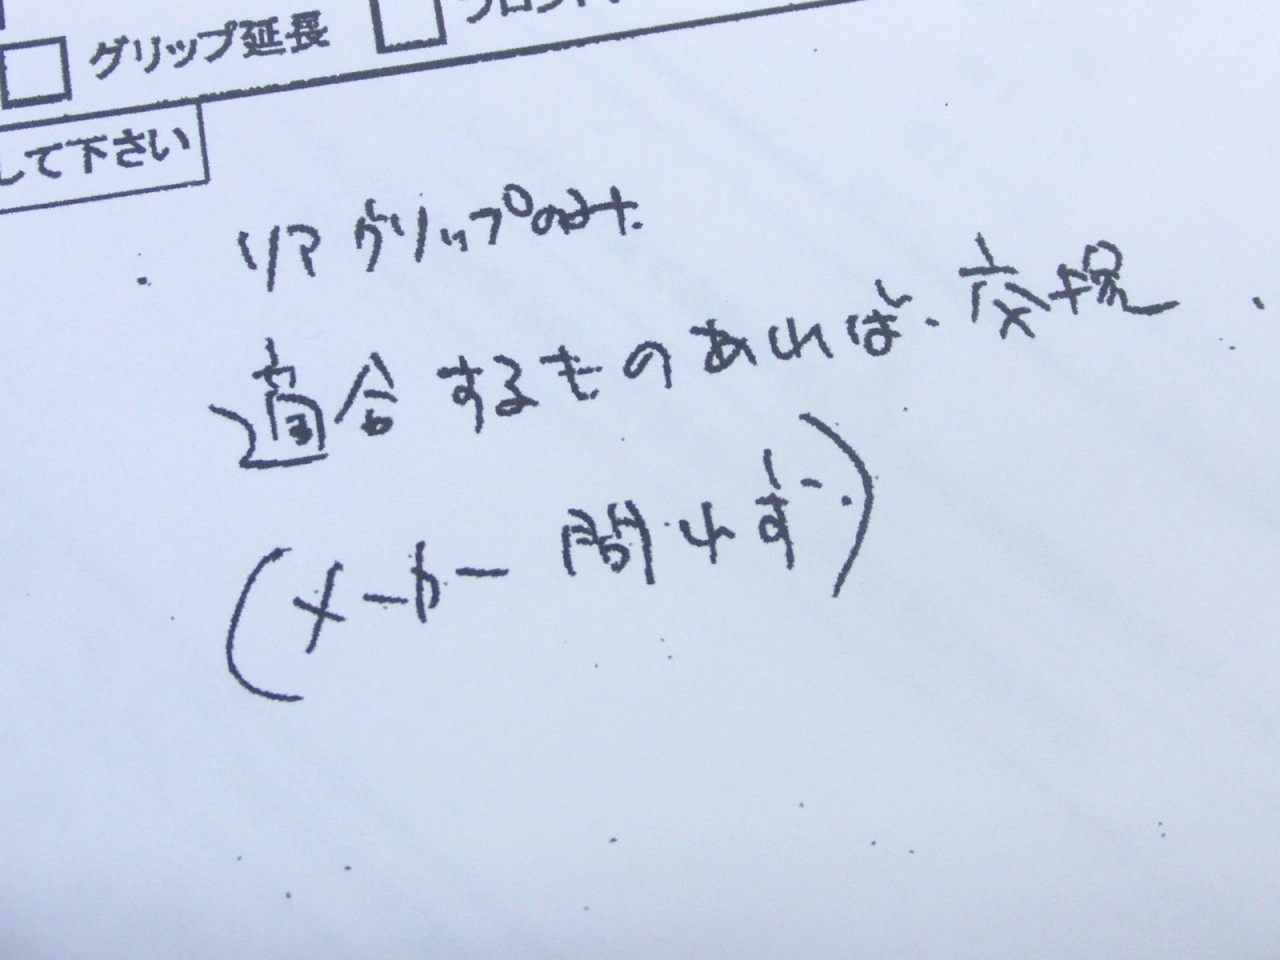 グリップ延長 フロント
して下さい
リアグリップのみ
適合するものあれば、交換
(メーカー問わず)